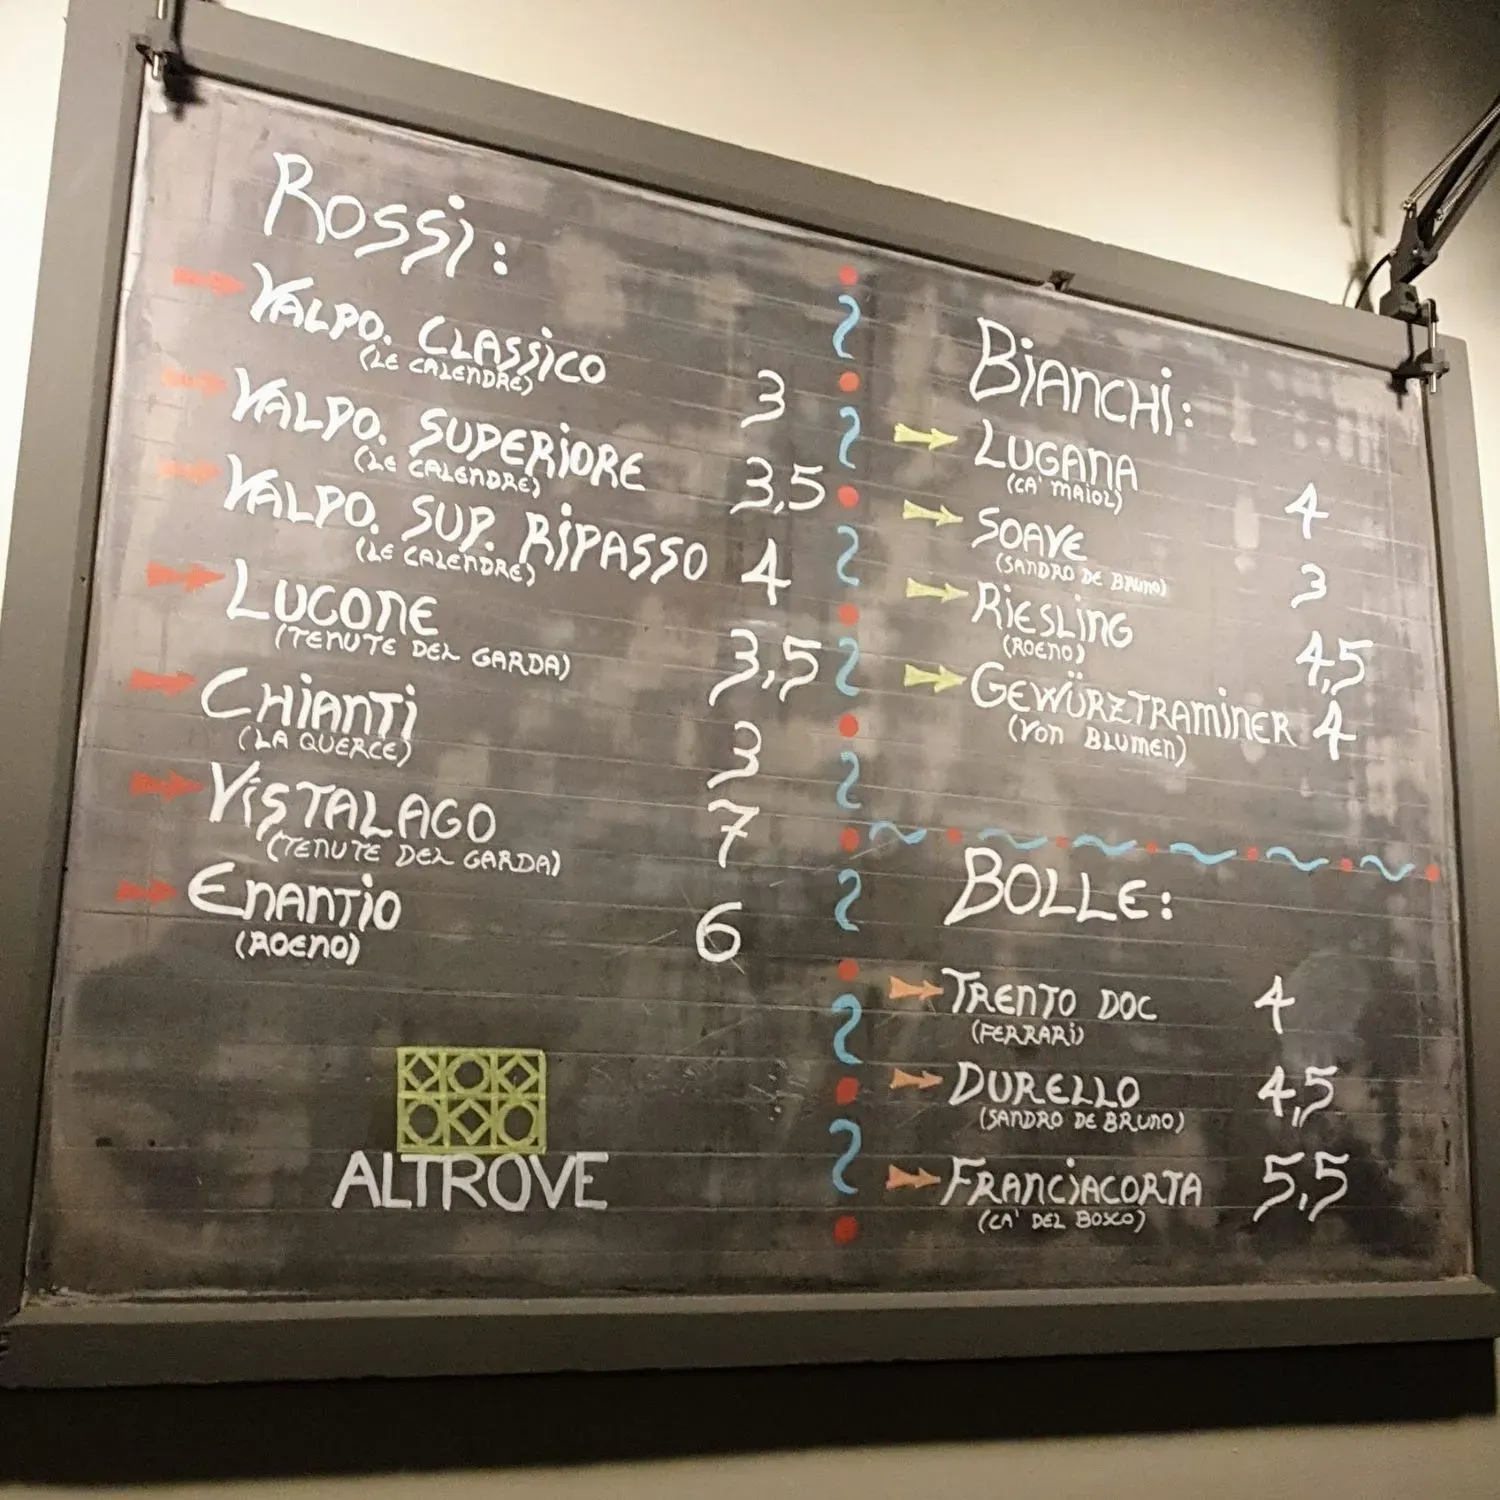 ROSSi:
VALPO. CLASSiCO
(LE CALENDRE) 3
VALPO. SUPERiORE
(LE CALENDRE) 3,5
VALPO. SUP. RiPASSO 4
(LE CALENDRE)
LUCONE
(TENUTE DEL GARDA) 3,5
CHiANTi
(LA QUERCE) 3
ViSTALAGO 7
(TENUTE DEL GARDA)
ENANTiO 6
(ROENO)
ALTROVE
BiANCHi:
LUGANA 4
(CA' MAiOL)
SOAVE 3
(SANDRO DE BRUNO)
RiESLiNG 4,5
(ROENO)
GEWÜRZTRAMiNER 4
(VON BLUMEN)
BOLLE:
TRENTO DOC 4
(FERRARi)
DURELLO 4,5
(SANDRO DE BRUNO)
FRANCiACORTA 5,5
(CA' DEL BOSCO)